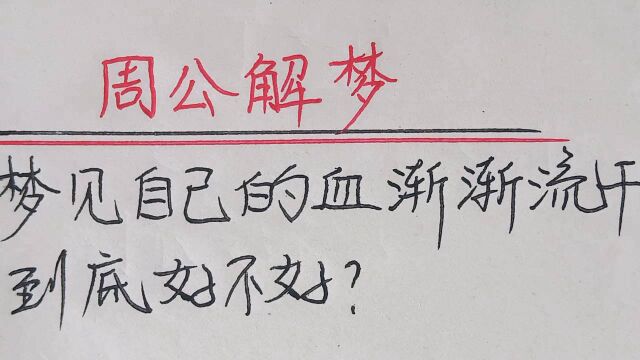 周公解梦
梦见自己的血渐渐流干
到底好不好?